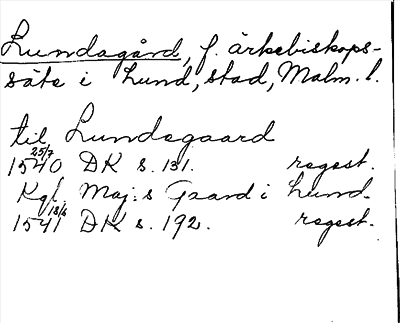 Lundagård, f. ärkebiskops-
säte i Lund, stad, Malm. l.
til Lundegaard
1540 25/7 DK s. 131. regest.
Kgl. Maj:s Gaard i Lund.
1541 18/6 DK s. 192. regest.